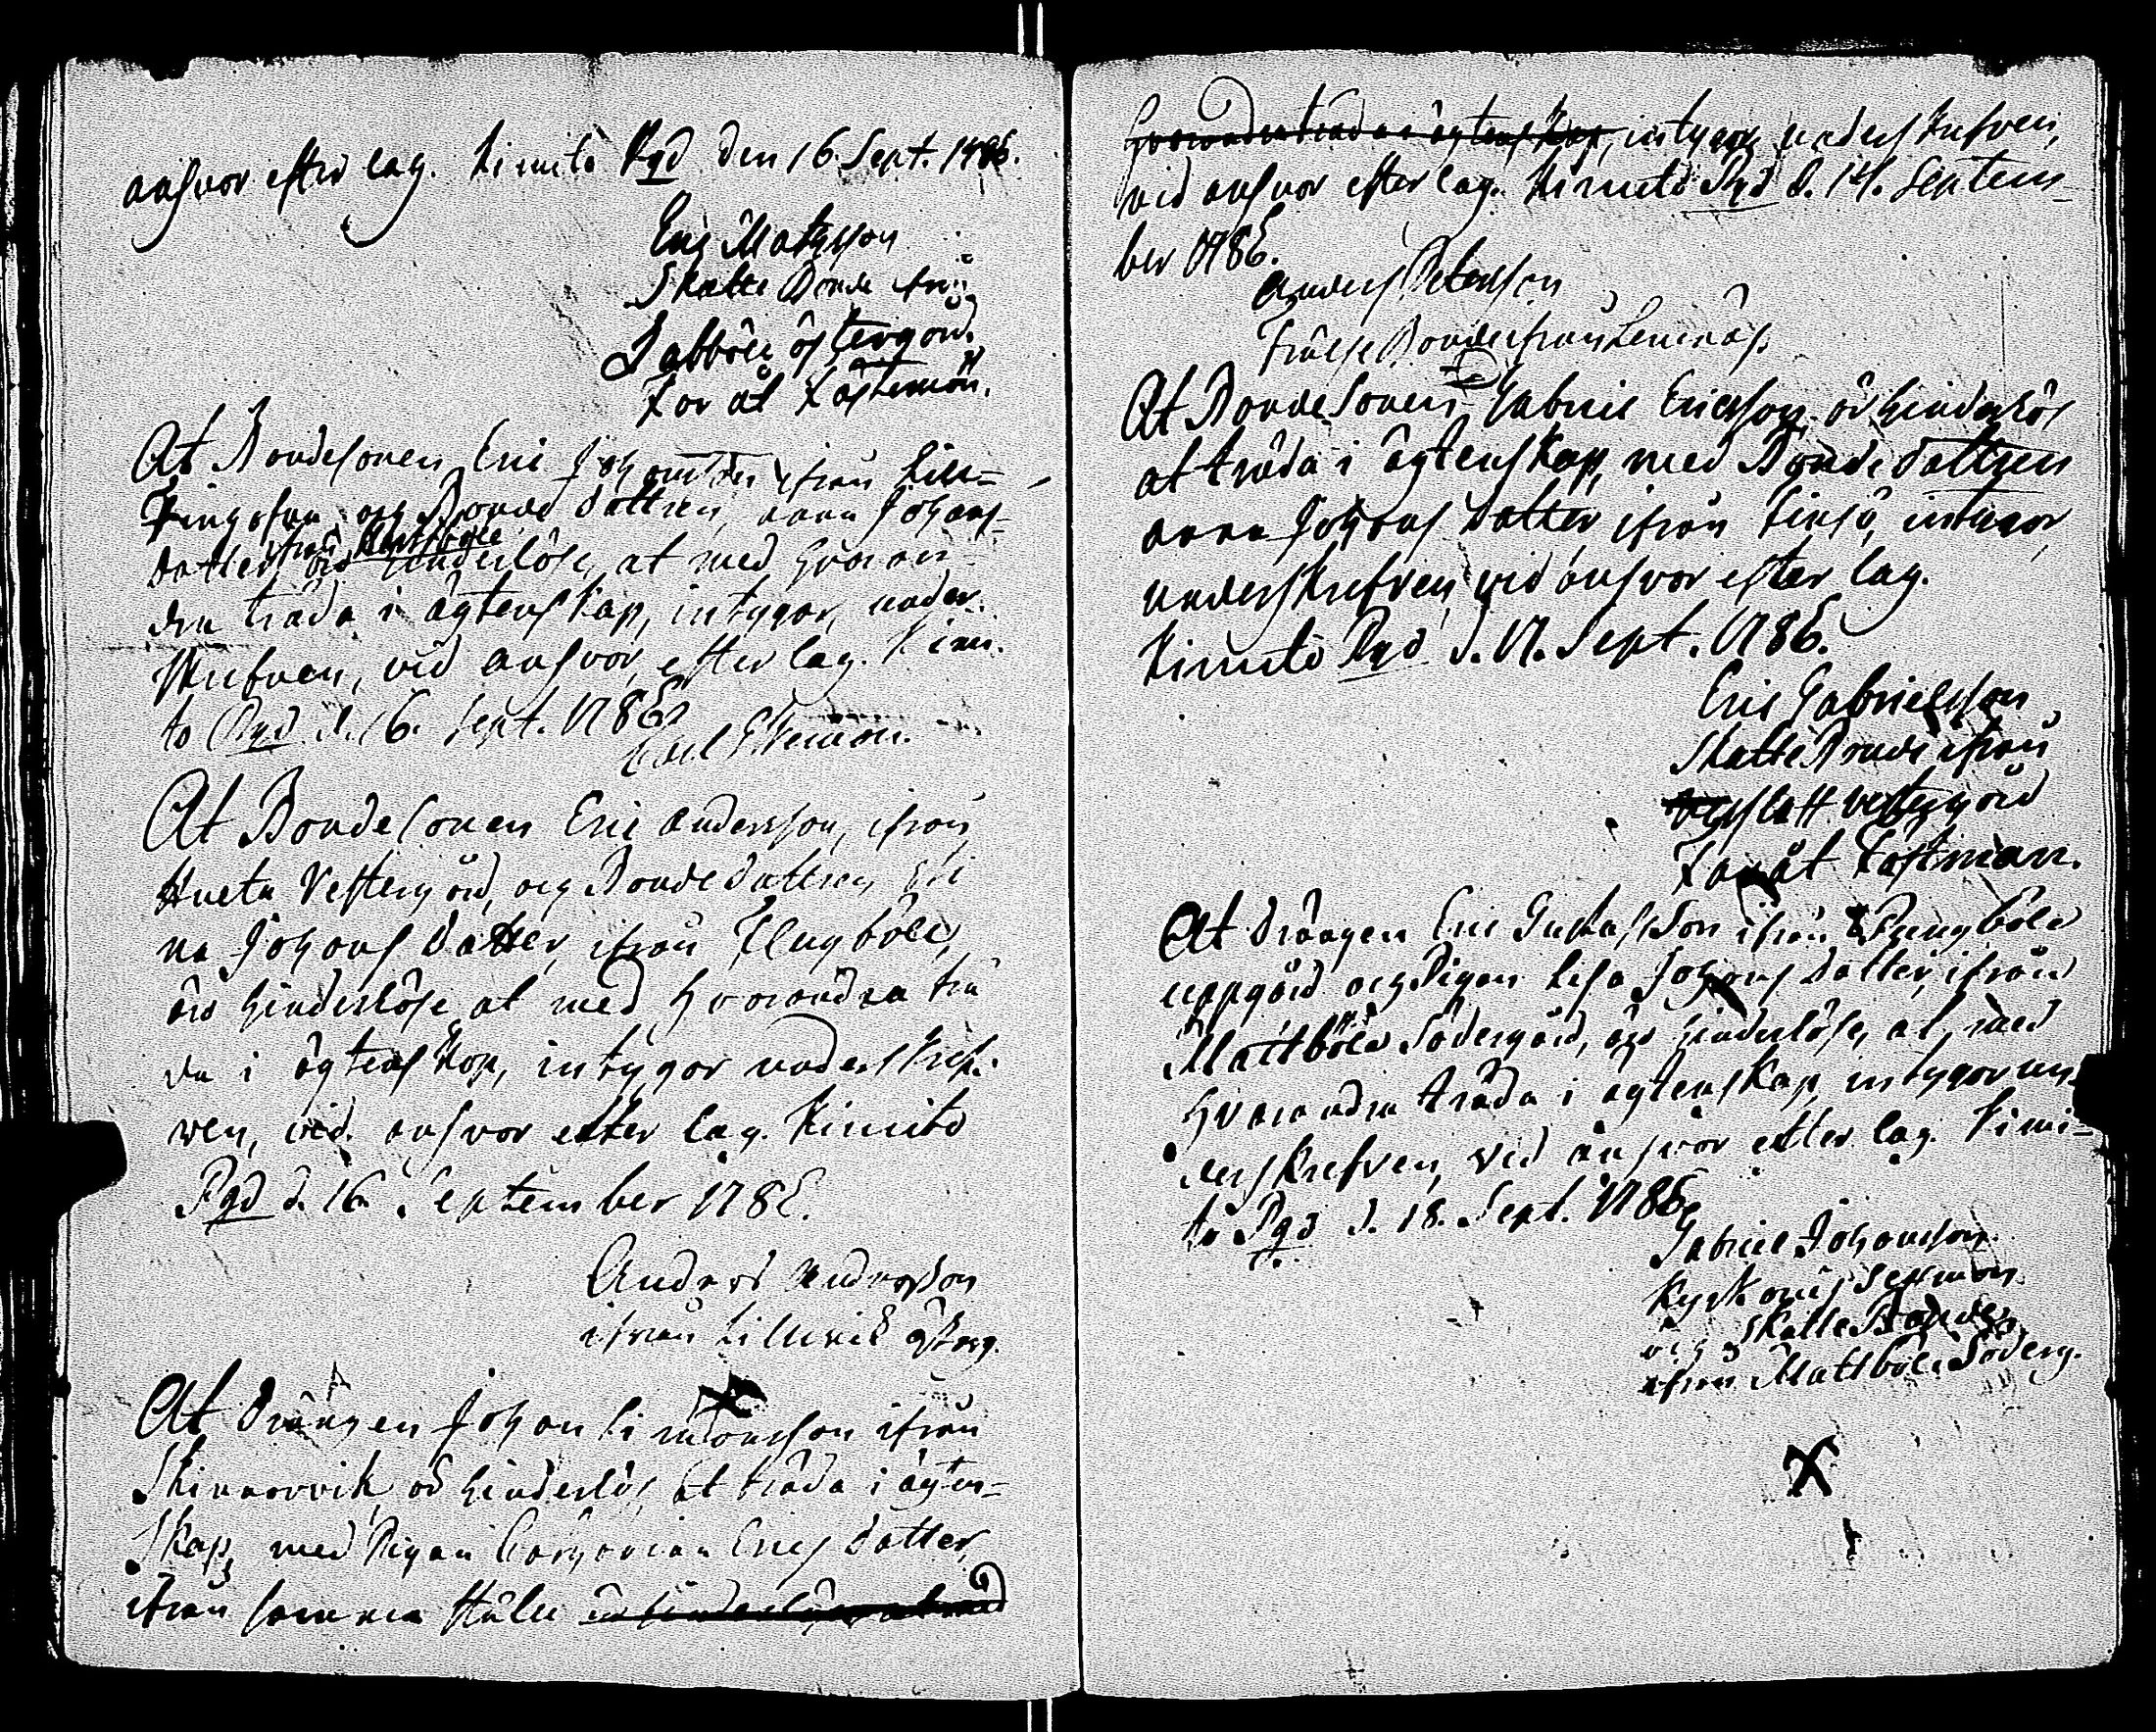 answar efter lag. Kimito Pgd den 16 Sept. 1786.
Eric Matsson
Skatte Bonde ifrån
Jabböle östergård.
For åt Kastemon.
At Bondesonen Eric Johansson ifrån Lill-
och Bonde dottren, Anna Johans-
dotter ifrån äro hinderlöse, at med hvaran-
dra träda i ägtenskap, intygar, under-
skrefven, vid answar, efter lag. Kimi-
to Pgd d. 16. Sept. 1786.
Carl
At Bondesonen Eric Andersson, ifrån
Vestergård, och Bondedottren Eli
na Johans dotter, ifrån Flugböle,
äro hinderlöse at med hvarandra trä
da i ägtenskap, intygar underskref-
ven, vid answar efter lag. Kimito
Pgd d. 16 September 1786.
Anders Andersson
ifrån Lillvik
At Drängen Johan Simonsson ifrån
Skinnarvik, är hinderlös, at träda i ägten-
skap, med Pigan Erics dotter,
ifrån samma ställe äro hinderlöse at med
hvarandra träda i ägtenskap, intygar underskrefven,
vid answar efter lag. Kimito Pgd d. 14. Septem-
ber 1786.
Anders Petersson
Frälse Bonde ifrån Lemnäs.
At Bonde Sonen Gabriel Ericsson är hinderlös
at träda i ägtenskap, med Bonde dottren
Anna Johans dotter ifrån Finsjö, intygar
underskrefven, vid answar efter lag.
Kimito Pgd d. 17. Sept. 1786.
Eric Gabrielsson
Skatte Bonde ifrån
vestergård
Kastman.
At Drängen Eric Gustafsson ifrån Pungböle
uppgård och Pigan Lisa Johans dotter, ifrån
Mattböle Södergård, äro hinderlöse, at med
hvarandra träda i ägtenskap, intygar un-
derskrefven, vid answar efter lag. Kimi-
to Pgd d. 18. Sept. 1786.
Gabriel Johansson.
Kyrkones Sexman
och Skatte Bonde
ifrån Mattböle Söderg.